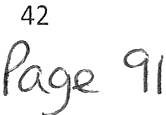 42
Page 91